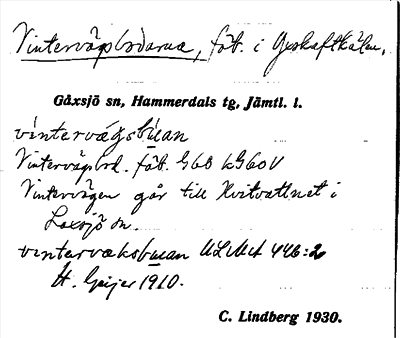 Vintervägsbodarna, fäb. i Yxskaftkälen,
Gåxsjö sn, Hammerdals tg, Jämtl. l.
vintervägsbuan
Vintervägsbod. fäb. GSB
Vintervägen går till Hvitvattnet i
Laxsjö sn.
vintervaksbuan ULMA 446:2
H. Geijer 1910.
C. Lindberg 1930.